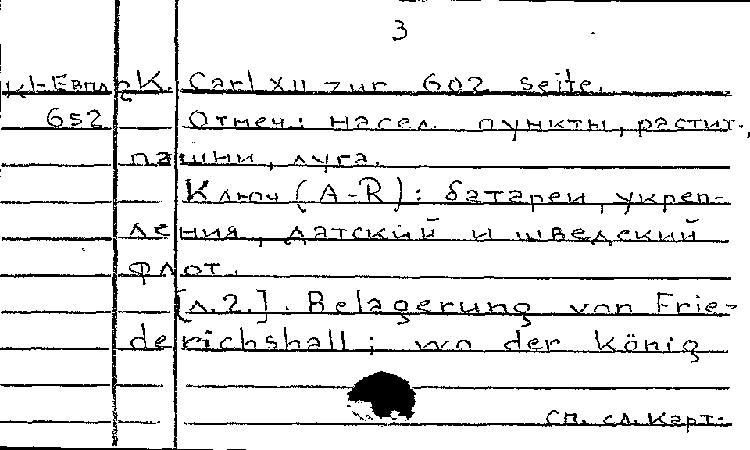 3
K. Carl XII zur 602 seite.
652 Отмеч.: насел. пункты, растит.,
пашни, луга.
Ключ (A-R): батареи, укреп-
ления, датский и шведский
флот.
[л.2.]. Belagerung von Frie-
derichshall; wo der König
См. сл. карт.